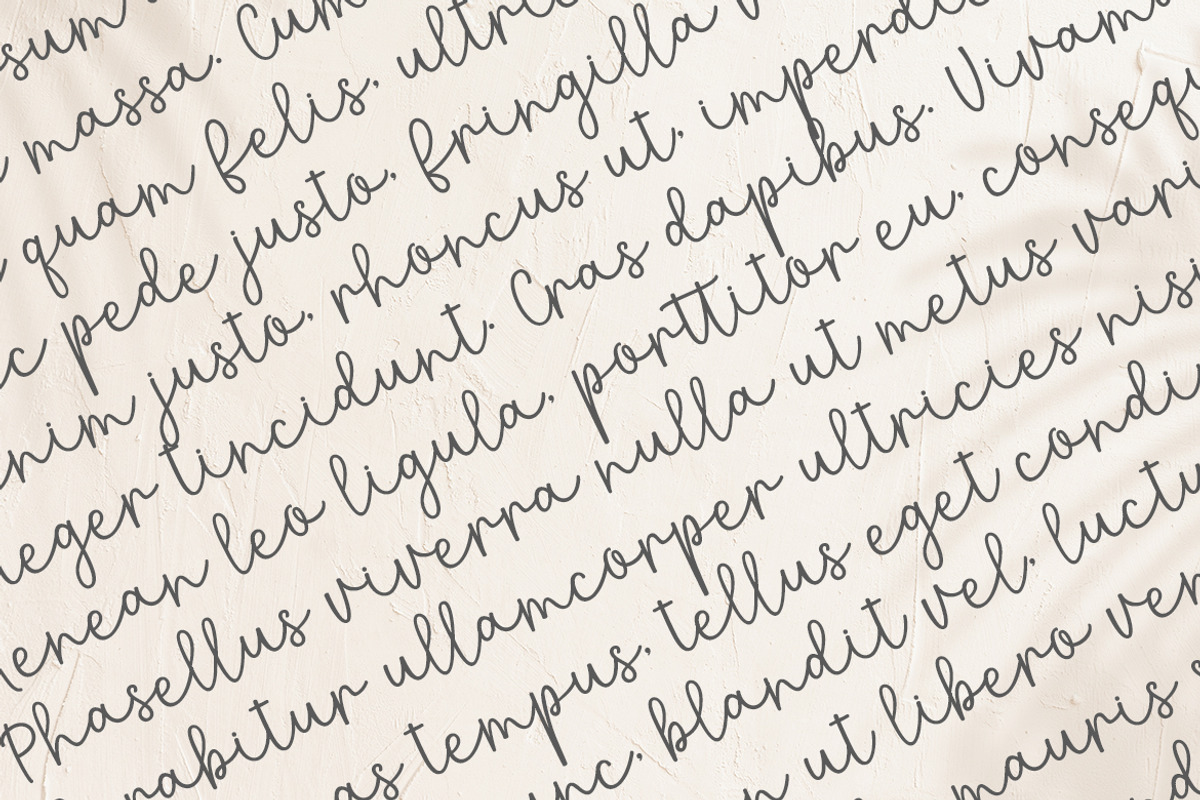 sum
massa. Cum
quam felis, ultric
c pede justo, fringilla v
nim justo, rhoncus ut, imperdi
eger tincidunt. Cras dapibus. Vivam
enean leo ligula, porttitor eu, consequ
Phasellus viverra nulla ut metus vari
rabitur ullamcorper ultricies nisi
as tempus, tellus eget condi
unc, blandit vel, luctu
ut libero ven
mauris